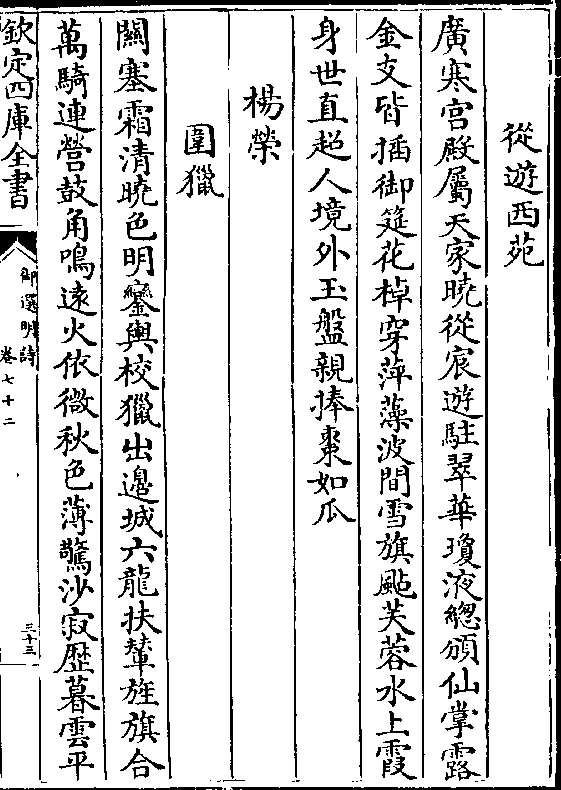 從遊西苑
廣寒宮殿屬天家曉從宸遊駐翠華瓊液緫頒仙掌露
金支皆插御筵花棹穿萍藻波間雪旗颭芙蓉水上霞
身世直超人境外玉盤親捧棗如瓜
楊榮
圍獵
關塞霜清曉色明鑾輿校獵出邊城六龍扶輦旌旗合
萬騎連營鼓角鳴遠火依微秋色薄驚沙寂歴暮雲平
欽定四庫全書
御選明詩
卷七十二
三十三